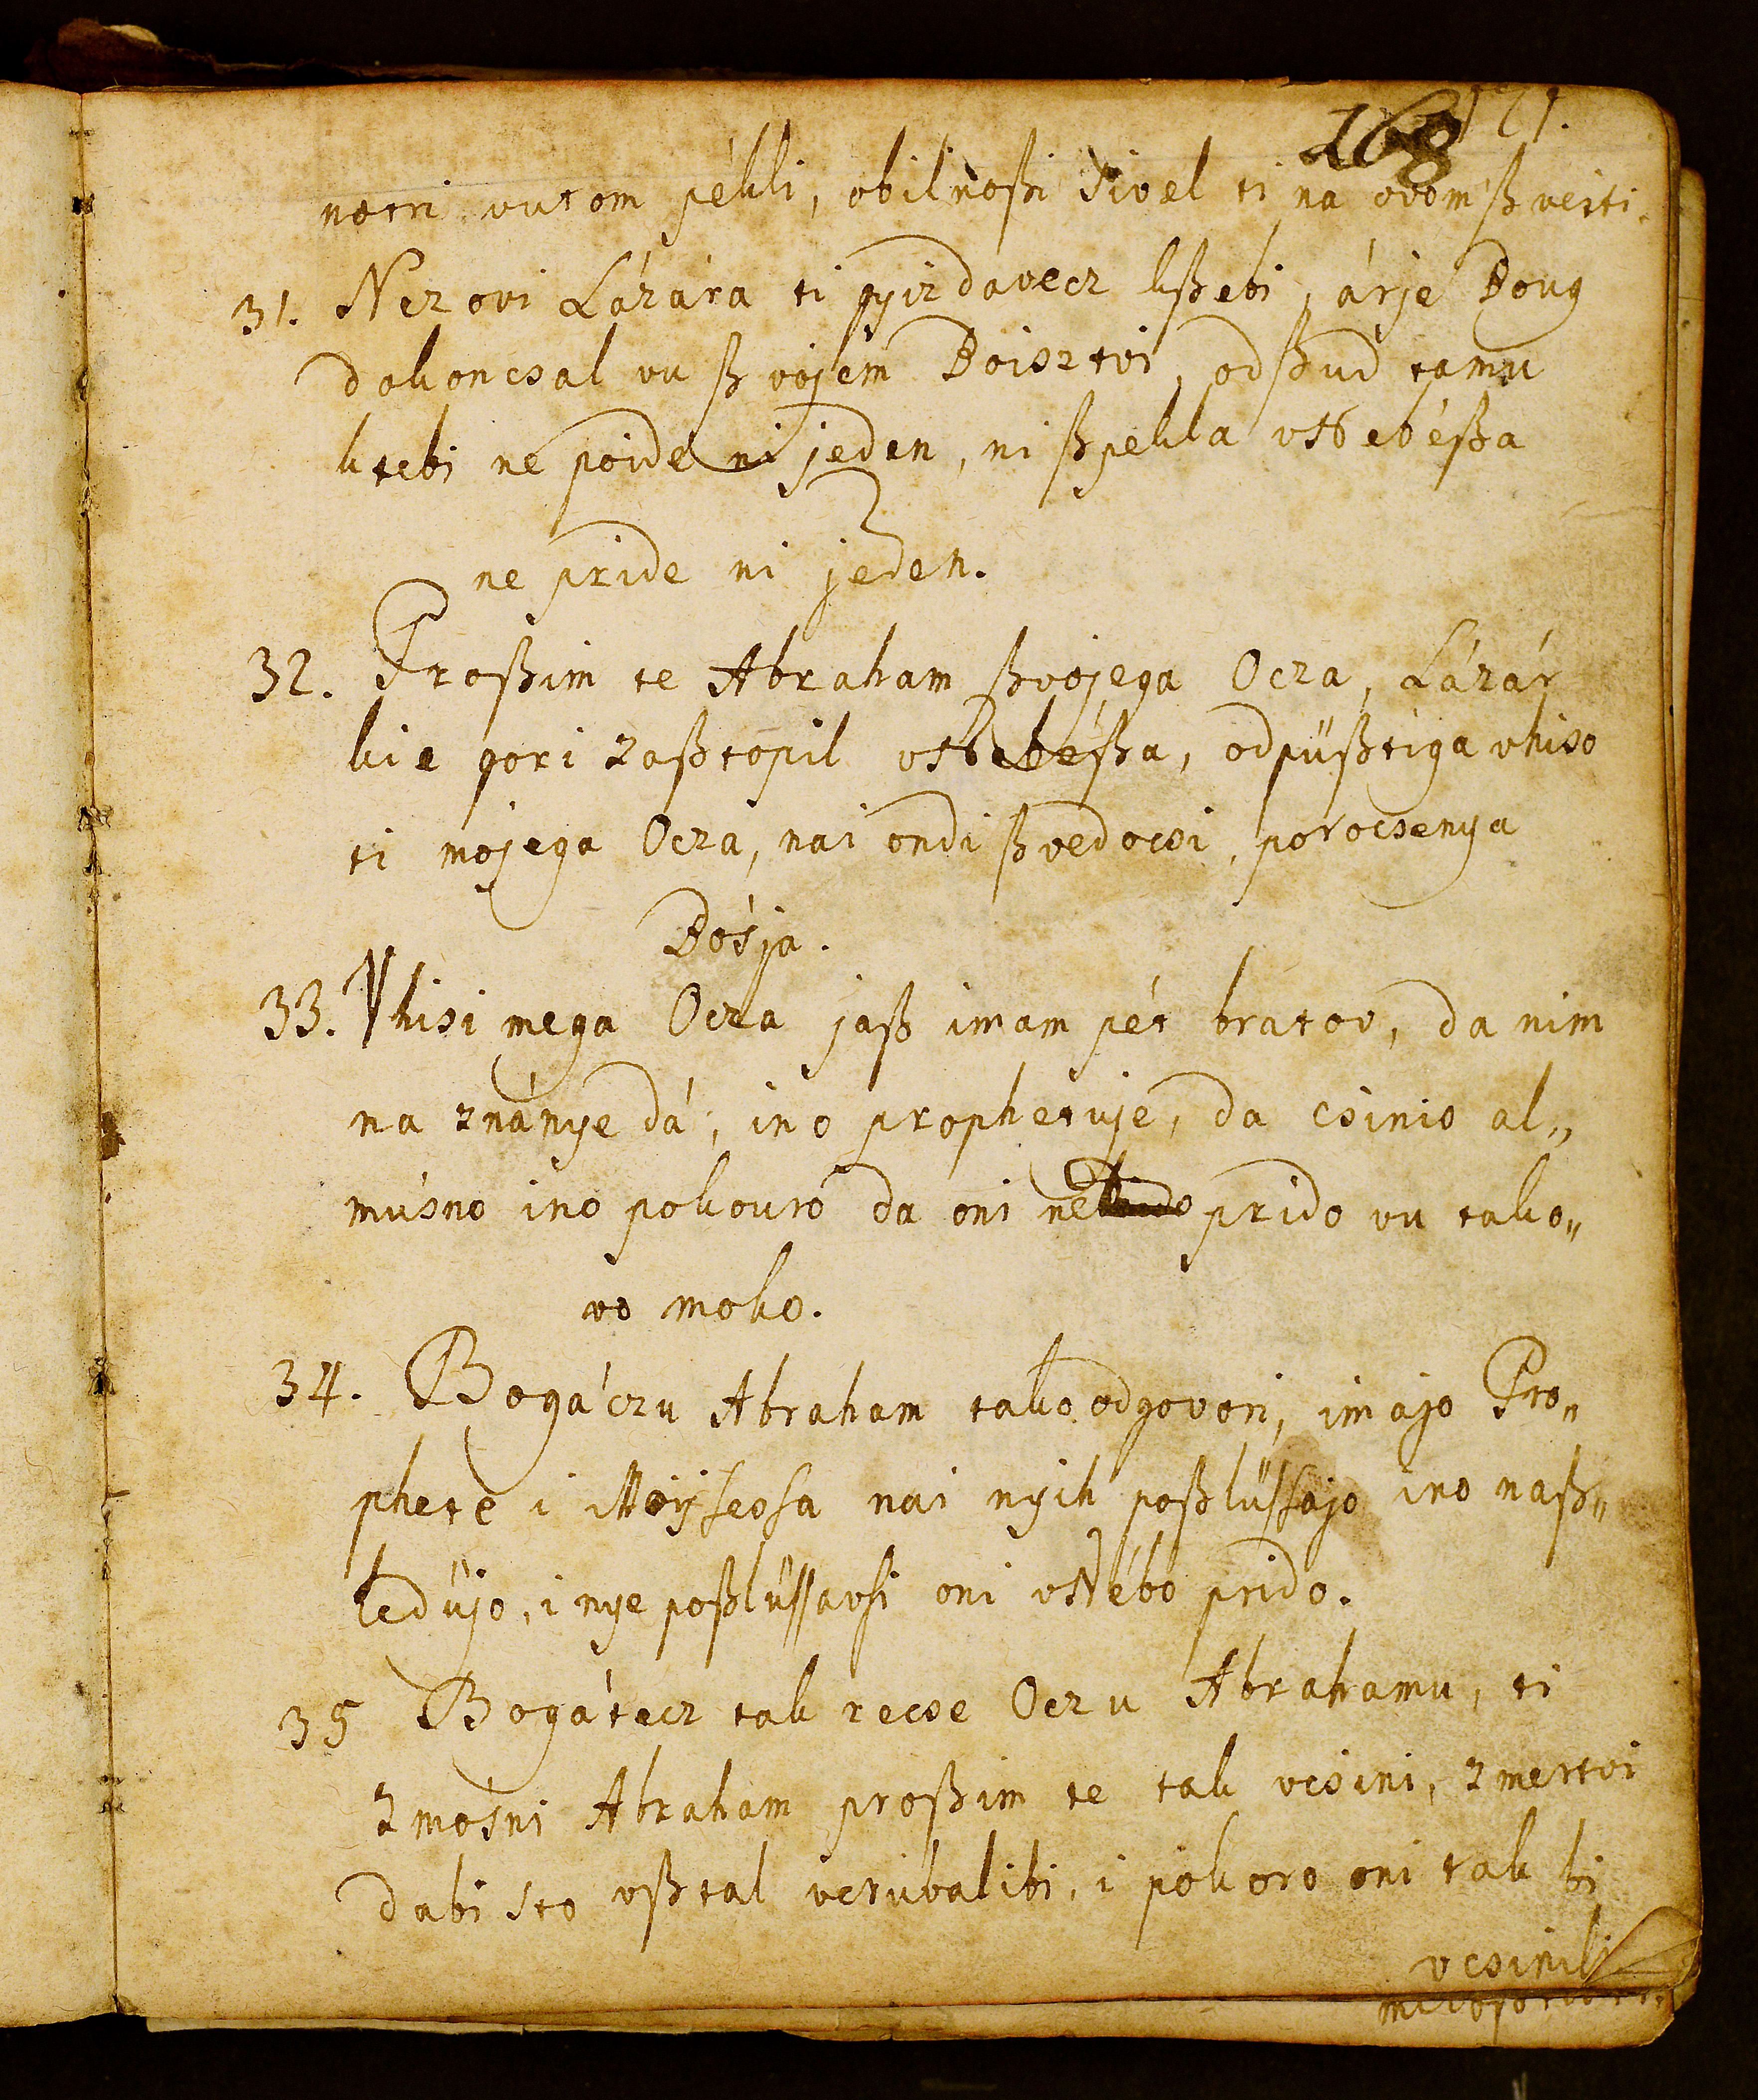 168 171.
notri vutom pékli, obilnoßti sivel ti na ovom ßveiti.
31. Nezovi Lázára ti gyizdavecz kßebi, árje Boug
dokoncsal vu ßvojem Boisztvi, odßud tamu
ktebi ne poide ni jeden, ni ßpekla vNebéßa
ne pride ni jeden.
32. Proßim te Abraham ßvojega Ocza, Lázár
kie gori zaßtopil vNebéßa, odpüßtiga vhiso
ti mojega Ocza, nai ondi ßvedocsi, porocsenya
Bósja.
33. Vhisi mega Ocza jaß imam pét bratov, da nim
na znánye dá, ino prophetuje, da csinio al„
músno ino pokouro da oni ne prido vu tako„
vo moko.
34. Bogáczu Abraham tako odgovori, imajo Pro„
phete i Moÿseosa nai nyih poßlüssajo ino naß„
ledüjo, i nye poßlüssavsi oni vNébo prido.
35 Bogátecz tak recse Oczu Abrahamu, ti
Zmósni Abraham proßim te tak vcsini, zmertvi
dabi sto vßtal veruvalibi, i pokoro oni tak bi
vcsinili